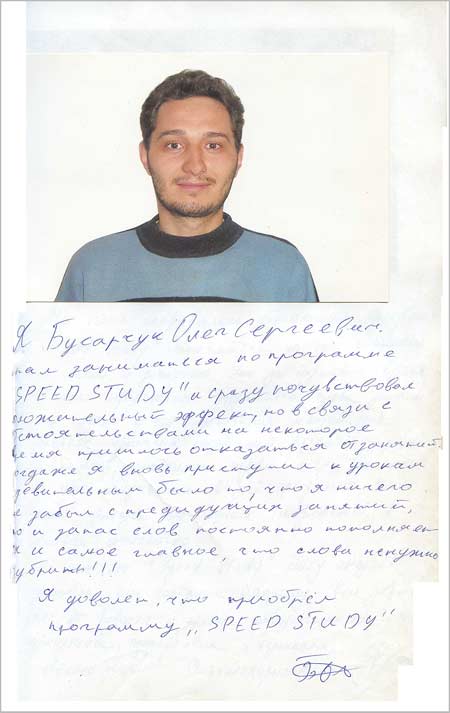 Я Бусарчук Олег Сергеевич.
чал заниматься по программе
SPEED STUDY" и сразу почувствовал
ложительный эффект, но в связи с
бстоятельствами на некоторое
емя пришлось отказаться от занятий.
огда же я вновь приступил к урокам
дивительным было то, что я ничего
е забыл с предидущих занятий,
о и запас слов постоянно пополняет
х и самое главное, что слова ненужно
зубрить!!!
Я доволен, что приобрёл
программу „SPEED STUDY"